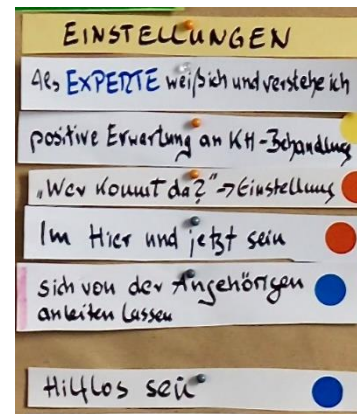 EINSTELLUNGEN
Als EXPERTE weiß ich und verstehe ich
positive Erwartung an KH-Behandlung
"Wer kommt da?" → Einstellung
Im Hier und jetzt sein
sich von der Angehörigen
anleiten lassen
Hilflos sein